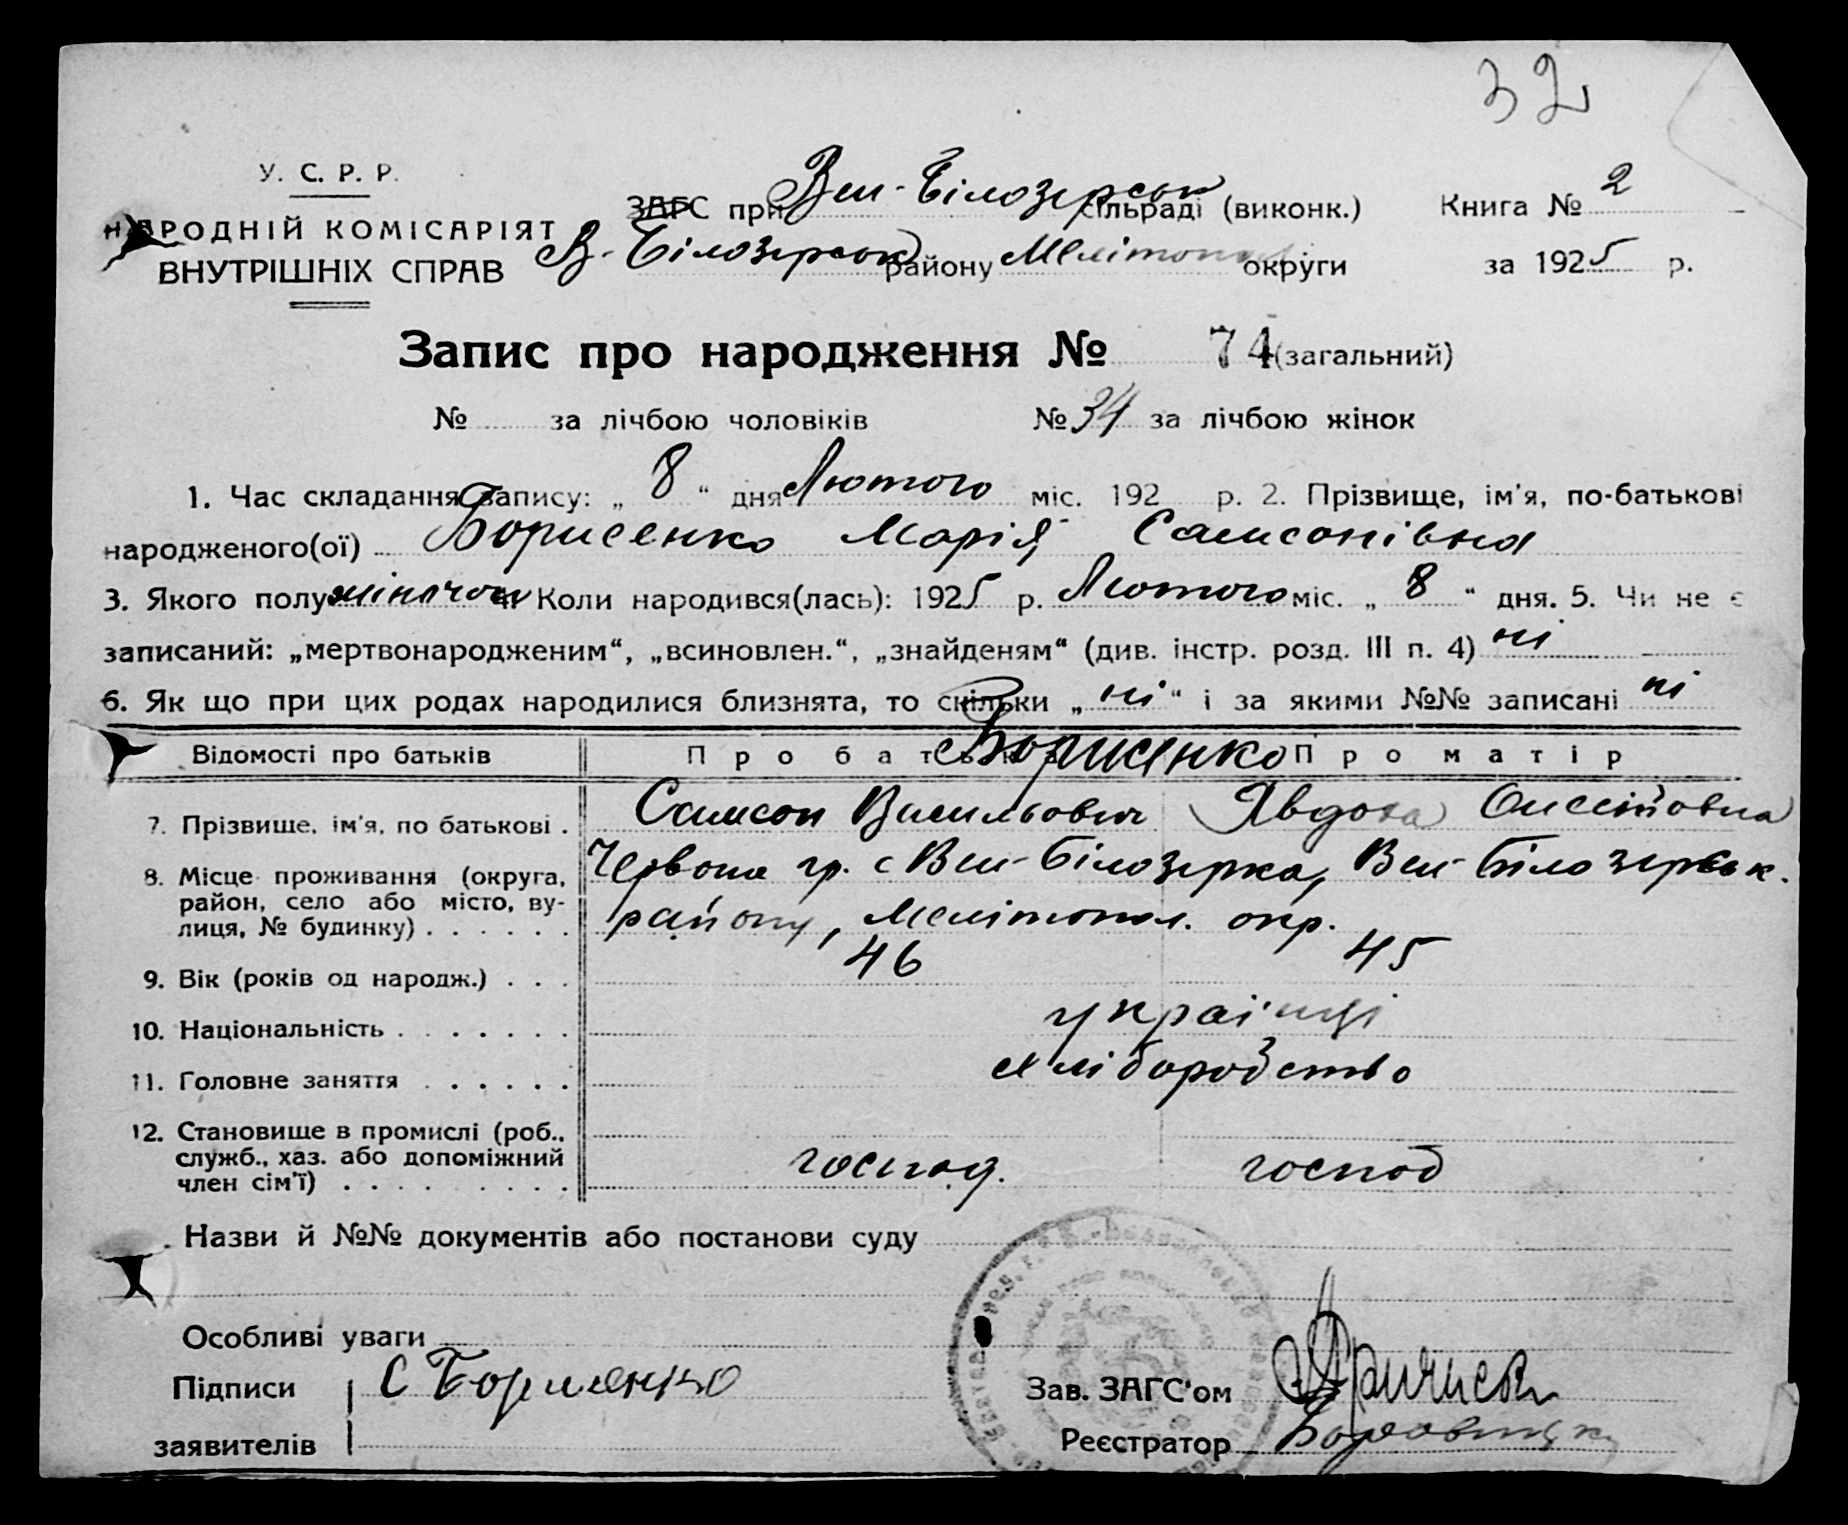 32
У. С. Р. Р.
НАРОДНІЙ КОМІСАРІЯТ
ВНУТРІШНІХ СПРАВ
ЗАГС при Вел-Білозерськ сільраді (виконк.) Книга № 2
В-Білозерськ району Мелітопол округи за 1925 р.
Запис про народження № 74 (загальний)
№ за лічбою чоловіків № 34 за лічбою жінок
1. Час складання запису: „ 8 “ дня Лютого міс. 192 р. 2. Прізвище, ім'я, по-батькові
народженого(ої) Борисенко Марія Самсонівна
3. Якого полу жіночого Коли народився(лась): 1925 р. Лютого міс. „ 8 “ дня. 5. Чи не є
записаний: „мертвонародженим“, „всиновлен.“, „знайденям“ (див. інстр. розд. III п. 4) ні
6. Як що при цих родах народилися близнята, то скільки „ ні “ і за якими №№ записані ні
Відомості про батьків Про батька Про матір
Борисенко
7. Прізвище, ім'я, по батькові . Самсон Васильович Явдоха
8. Місце проживання (округа, район, село або місто, вулиця, № будинку) . . . . . . Червона гр. с Вел-Білозерка, Вел-Білозерськ.
району, Мелітопол. окр.
9. Вік (років од народж.) . . . 46 45
10. Національність . . . . . . . українці
11. Головне заняття . . . . . . хліборобство
12. Становище в промислі (роб., служб., хаз. або допоміжний член сім'ї) . . . . . . . . . госпад. господ
Назви й №№ документів або постанови суду
Особливі уваги
Підписи С Борисенко
заявителів
Зав. ЗАГС'ом
Реєстратор